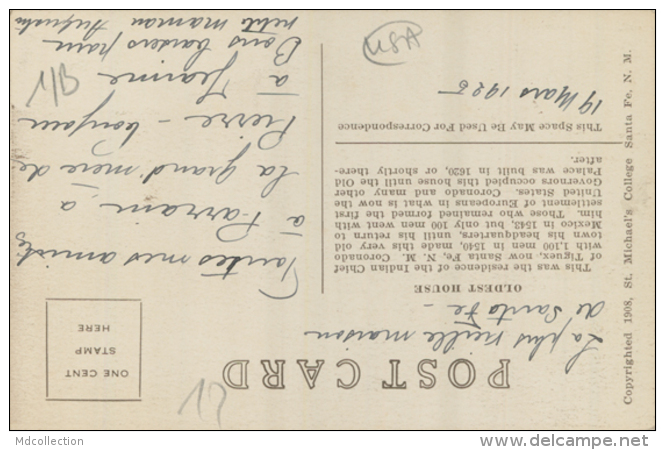 POST CARD
ONE CENT
STAMP
HERE
La plus vieille maison
de Santa Fe -
OLDEST HOUSE
This was the residence of the Indian Chief
of Tiguex, now Santa Fe, N. M. Coronado
with 1,100 men in 1540, made this very old
town his headquarters, until his return to
Mexico in 1543, but only 100 men went with
him. Those who remained formed the first
settlement of Europeans in what is now the
United States. Coronado and many other
Governors occupied this house until the Old
Palace was built in 1620, or shortly there-
after.
This Space May Be Used For Correspondence
19 Mars 1925
Toutes mes amitiés
à Parrain, a
La grand mere de
Pierre - bonjour
à Jeanne
Bons baisers pour
petite maman Augusta
Copyrighted 1908, St. Michael's College Santa Fe, N. M.
USA
1/B
12
Mdcollection
www.delcampe.net